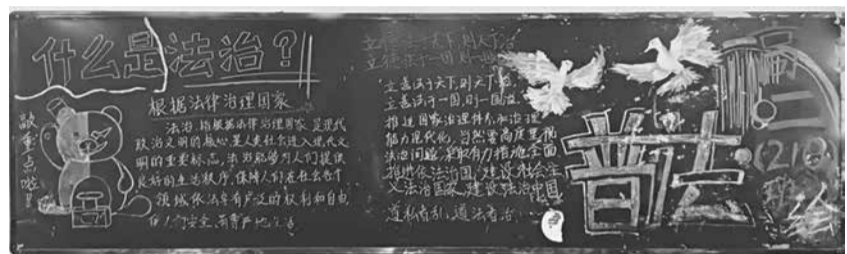 什么是法治？
根据法律治理国家
敲重点啦！
法治，指根据法律治理国家，是现代
政治文明的核心，是人类社会进入现代文
明的重要标志，法治能够为人们提供
良好的生活秩序，保障人们在社会各个
领域依法享有广泛的权利和自由，
使人们安全、有尊严地生活
立善法于天下，则天下治，
立善法于一国，则一国治。
推进国家治理体系和治理
能力现代化，当然要高度重视
法治问题，采取有力措施全面
推进依法治国，建设社会主
义法治国家，建设法治中国
道私者乱，道法者治
普法
高二
(21)
班
绘